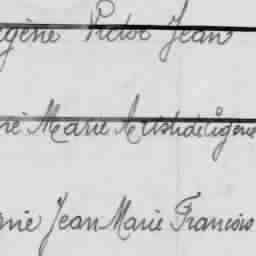 egène Victor Jean
né Marie Aristide Eugène
nie Jean Marie Francois